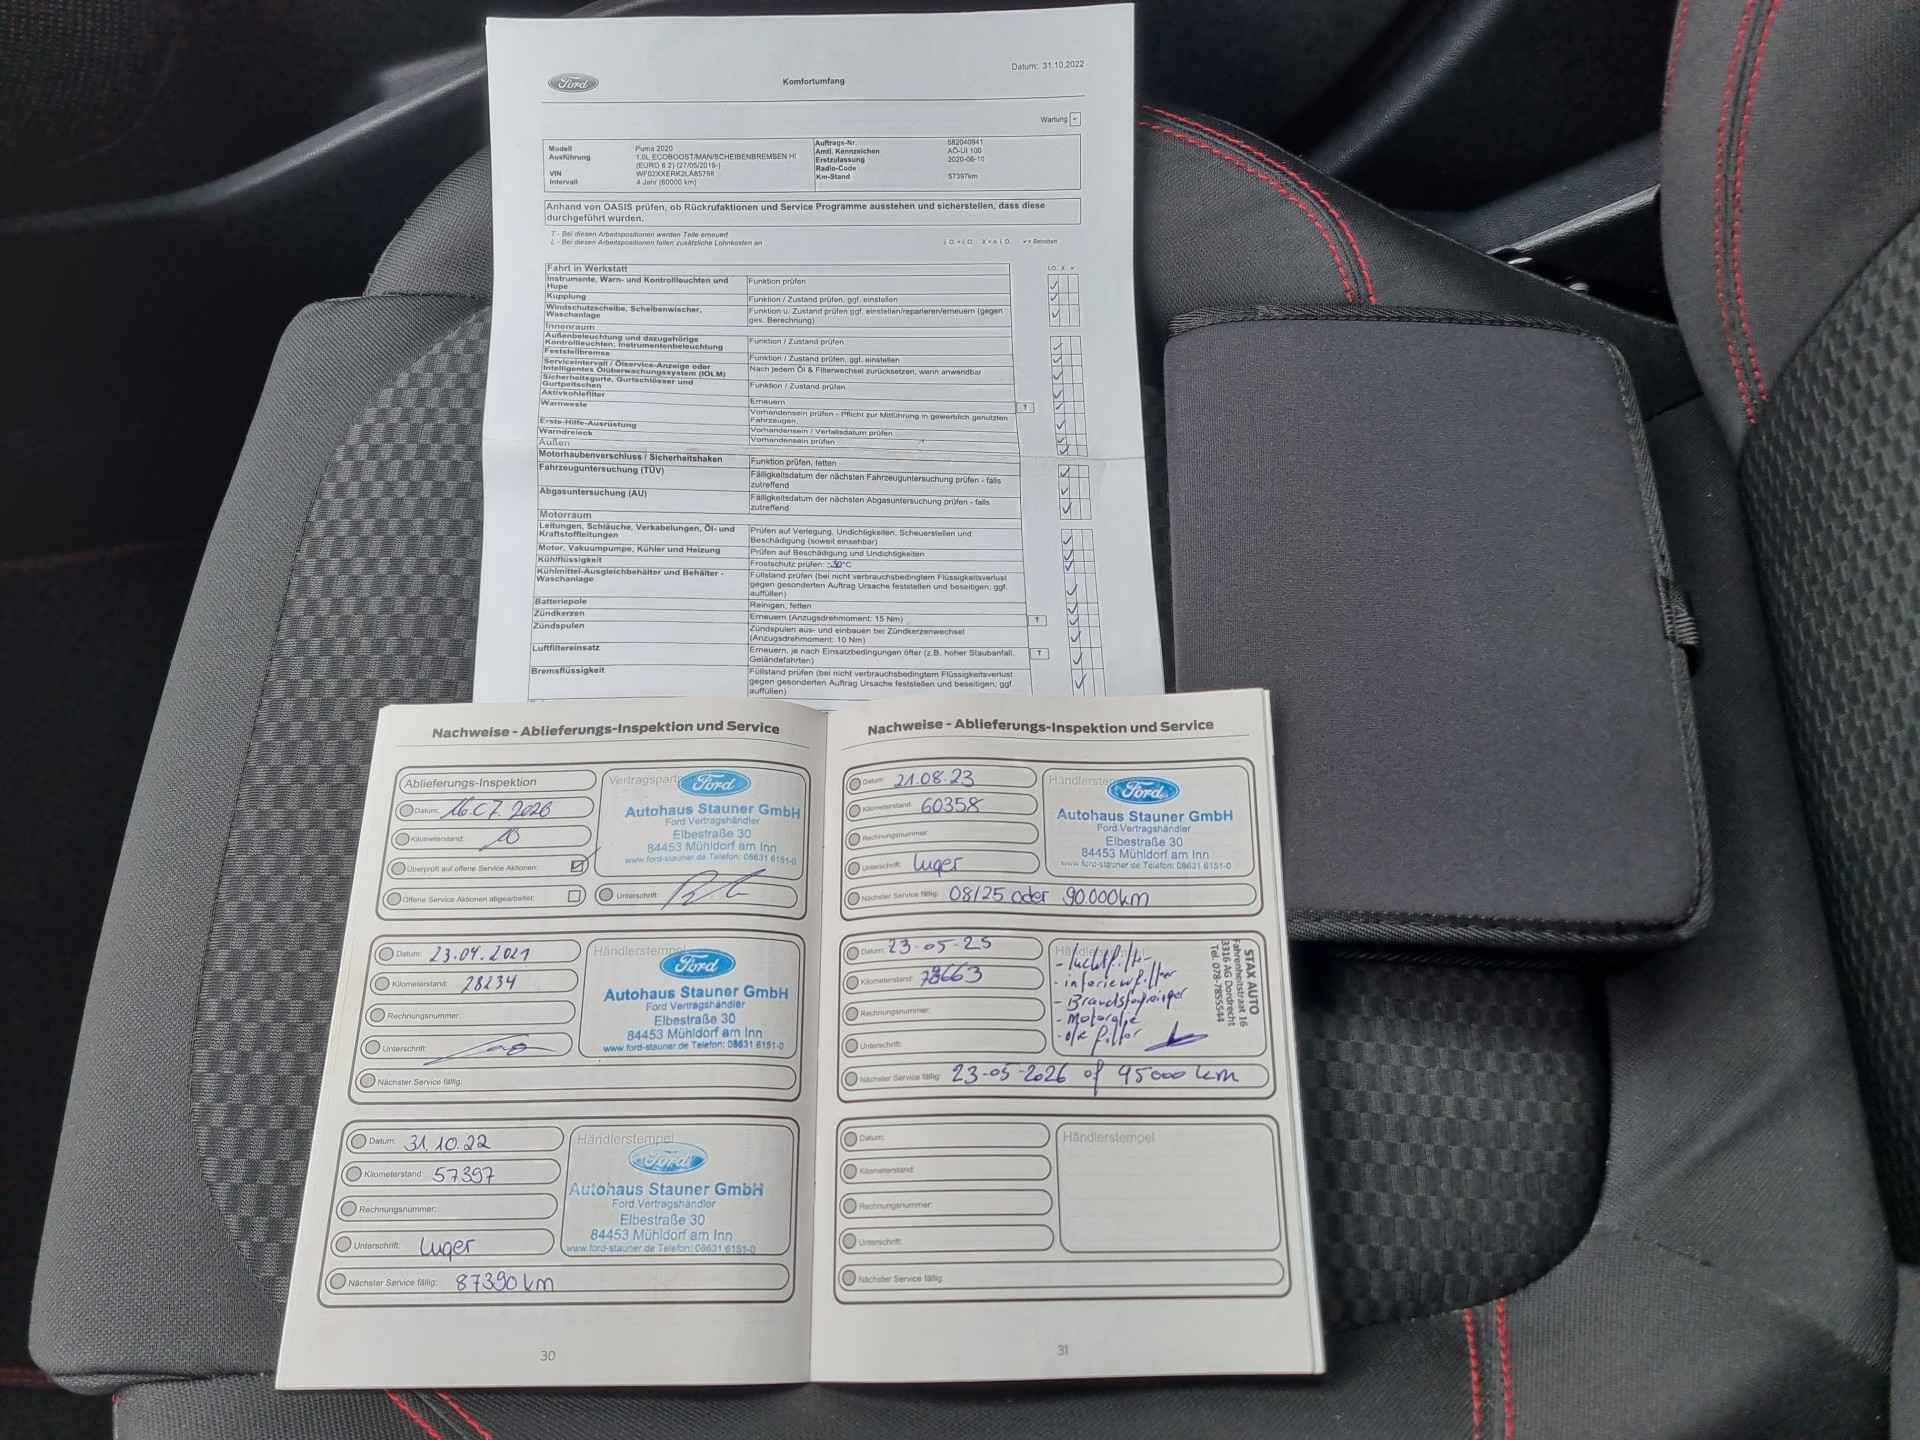 Datum: 31.10.2022
Ford
Komfortumfang
Wartung
Modell Puma 2020
Ausführung 1.0L ECOBOOST/MAN/SCHEIBENBREMSEN HI
(EURO 6.2) (27/05/2019-)
VIN WF02XXERK2LA85798
Intervall 4 Jahr (60000 km)
Auftrags-Nr. 582040941
Amtl. Kennzeichen AÖ-UI 100
Erstzulassung 2020-06-10
Radio-Code
Km-Stand 57397km
Anhand von OASIS prüfen, ob Rückrufaktionen und Service Programme ausstehen und sicherstellen, dass diese
durchgeführt wurden.
T - Bei diesen Arbeitspositionen werden Teile erneuert
L - Bei diesen Arbeitspositionen fallen zusätzliche Lohnkosten an
Fahrt in Werkstatt
Instrumente, Warn- und Kontrollleuchten und Hupe Funktion prüfen
Kupplung Funktion / Zustand prüfen, ggf. einstellen
Windschutzscheibe, Scheibenwischer, Funktion u. Zustand prüfen ggf. einstellen/reparieren/erneuern (gegen
Waschanlage ges. Berechnung)
Innenraum
Außenbeleuchtung und dazugehörige Funktion / Zustand prüfen
Kontrollleuchten; Instrumentenbeleuchtung
Feststellbremse Funktion / Zustand prüfen, ggf. einstellen
Serviceintervall / Ölservice-Anzeige oder Nach jedem Öl & Filterwechsel zurücksetzen, wenn anwendbar
Intelligentes Ölüberwachungssystem (IOLM)
Sicherheitsgurte, Gurtschlösser und Funktion / Zustand prüfen
Gurtpeitschen
Aktivkohlefilter Erneuern T
Warnweste Vorhandensein prüfen - Pflicht zur Mitführung in gewerblich genutzten
Fahrzeugen.
Erste-Hilfe-Ausrüstung Vorhandensein / Verfallsdatum prüfen
Warndreieck Vorhandensein prüfen
Außen
Motorhaubenverschluss / Sicherheitshaken Funktion prüfen, fetten
Fahrzeuguntersuchung (TÜV) Fälligkeitsdatum der nächsten Fahrzeuguntersuchung prüfen - falls
zutreffend
Abgasuntersuchung (AU) Fälligkeitsdatum der nächsten Abgasuntersuchung prüfen - falls
zutreffend
Motorraum
Leitungen, Schläuche, Verkabelungen, Öl- und Prüfen auf Verlegung, Undichtigkeiten, Scheuerstellen und
Kraftstoffleitungen Beschädigung (soweit einsehbar)
Motor, Vakuumpumpe, Kühler und Heizung Prüfen auf Beschädigung und Undichtigkeiten
Kühlflüssigkeit Frostschutz prüfen: -30°C
Kühlmittel-Ausgleichbehälter und Behälter - Füllstand prüfen (bei nicht verbrauchsbedingtem Flüssigkeitsverlust
Waschanlage gegen gesonderten Auftrag Ursache feststellen und beseitigen; ggf.
auffüllen)
Batteriepole Reinigen, fetten
Zündkerzen Erneuern (Anzugsdrehmoment: 15 Nm) T
Zündspulen Zündspulen aus- und einbauen bei Zündkerzenwechsel
(Anzugsdrehmoment: 10 Nm)
Luftfiltereinsatz Erneuern, je nach Einsatzbedingungen öfter (z.B. hoher Staubanfall, T
Geländefahrten)
Bremsflüssigkeit Füllstand prüfen (bei nicht verbrauchsbedingtem Flüssigkeitsverlust
gegen gesonderten Auftrag Ursache feststellen und beseitigen; ggf.
auffüllen)
Nachweise - Ablieferungs-Inspektion und Service
Ablieferungs-Inspektion
Datum: 16.07.2020
Kilometerstand: 10
Überprüft auf offene Service Aktionen:
Offene Service Aktionen abgearbeitet:
Ford
Autohaus Stauner GmbH
Ford Vertragshändler
Elbestraße 30
84453 Mühldorf am Inn
www.ford-stauner.de Telefon: 08631 6151-0
Unterschrift:
Datum: 23.04.2021
Kilometerstand: 28234
Rechnungsnummer:
Unterschrift:
Nächster Service fällig:
Händlerstempel
Ford
Autohaus Stauner GmbH
Ford Vertragshändler
Elbestraße 30
84453 Mühldorf am Inn
www.ford-stauner.de Telefon: 08631 6151-0
Datum: 31.10.22
Kilometerstand: 57397
Rechnungsnummer:
Unterschrift: Luger
Nächster Service fällig: 87390 km
Händlerstempel
Ford
Autohaus Stauner GmbH
Ford Vertragshändler
Elbestraße 30
84453 Mühldorf am Inn
www.ford-stauner.de Telefon: 08631 6151-0
30
Nachweise - Ablieferungs-Inspektion und Service
Datum: 21.08.23
Kilometerstand: 60358
Rechnungsnummer:
Unterschrift: Luger
Nächster Service fällig: 08/25 oder 90.000km
Ford
Autohaus Stauner GmbH
Ford Vertragshändler
Elbestraße 30
84453 Mühldorf am Inn
www.ford-stauner.de Telefon: 08631 6151-0
Datum: 23-05-25
Kilometerstand:
Rechnungsnummer:
Unterschrift:
Nächster Service fällig: 23-05-2026 of 95000 km
- luchtfilter
- interieurfilter
- Motorolie
- olie filter
STAX AUTO
Fahrenheitstraat 16
3316 AG Dordrecht
Tel. 078-7855544
Datum:
Kilometerstand:
Rechnungsnummer:
Unterschrift:
Nächster Service fällig:
Händlerstempel
31